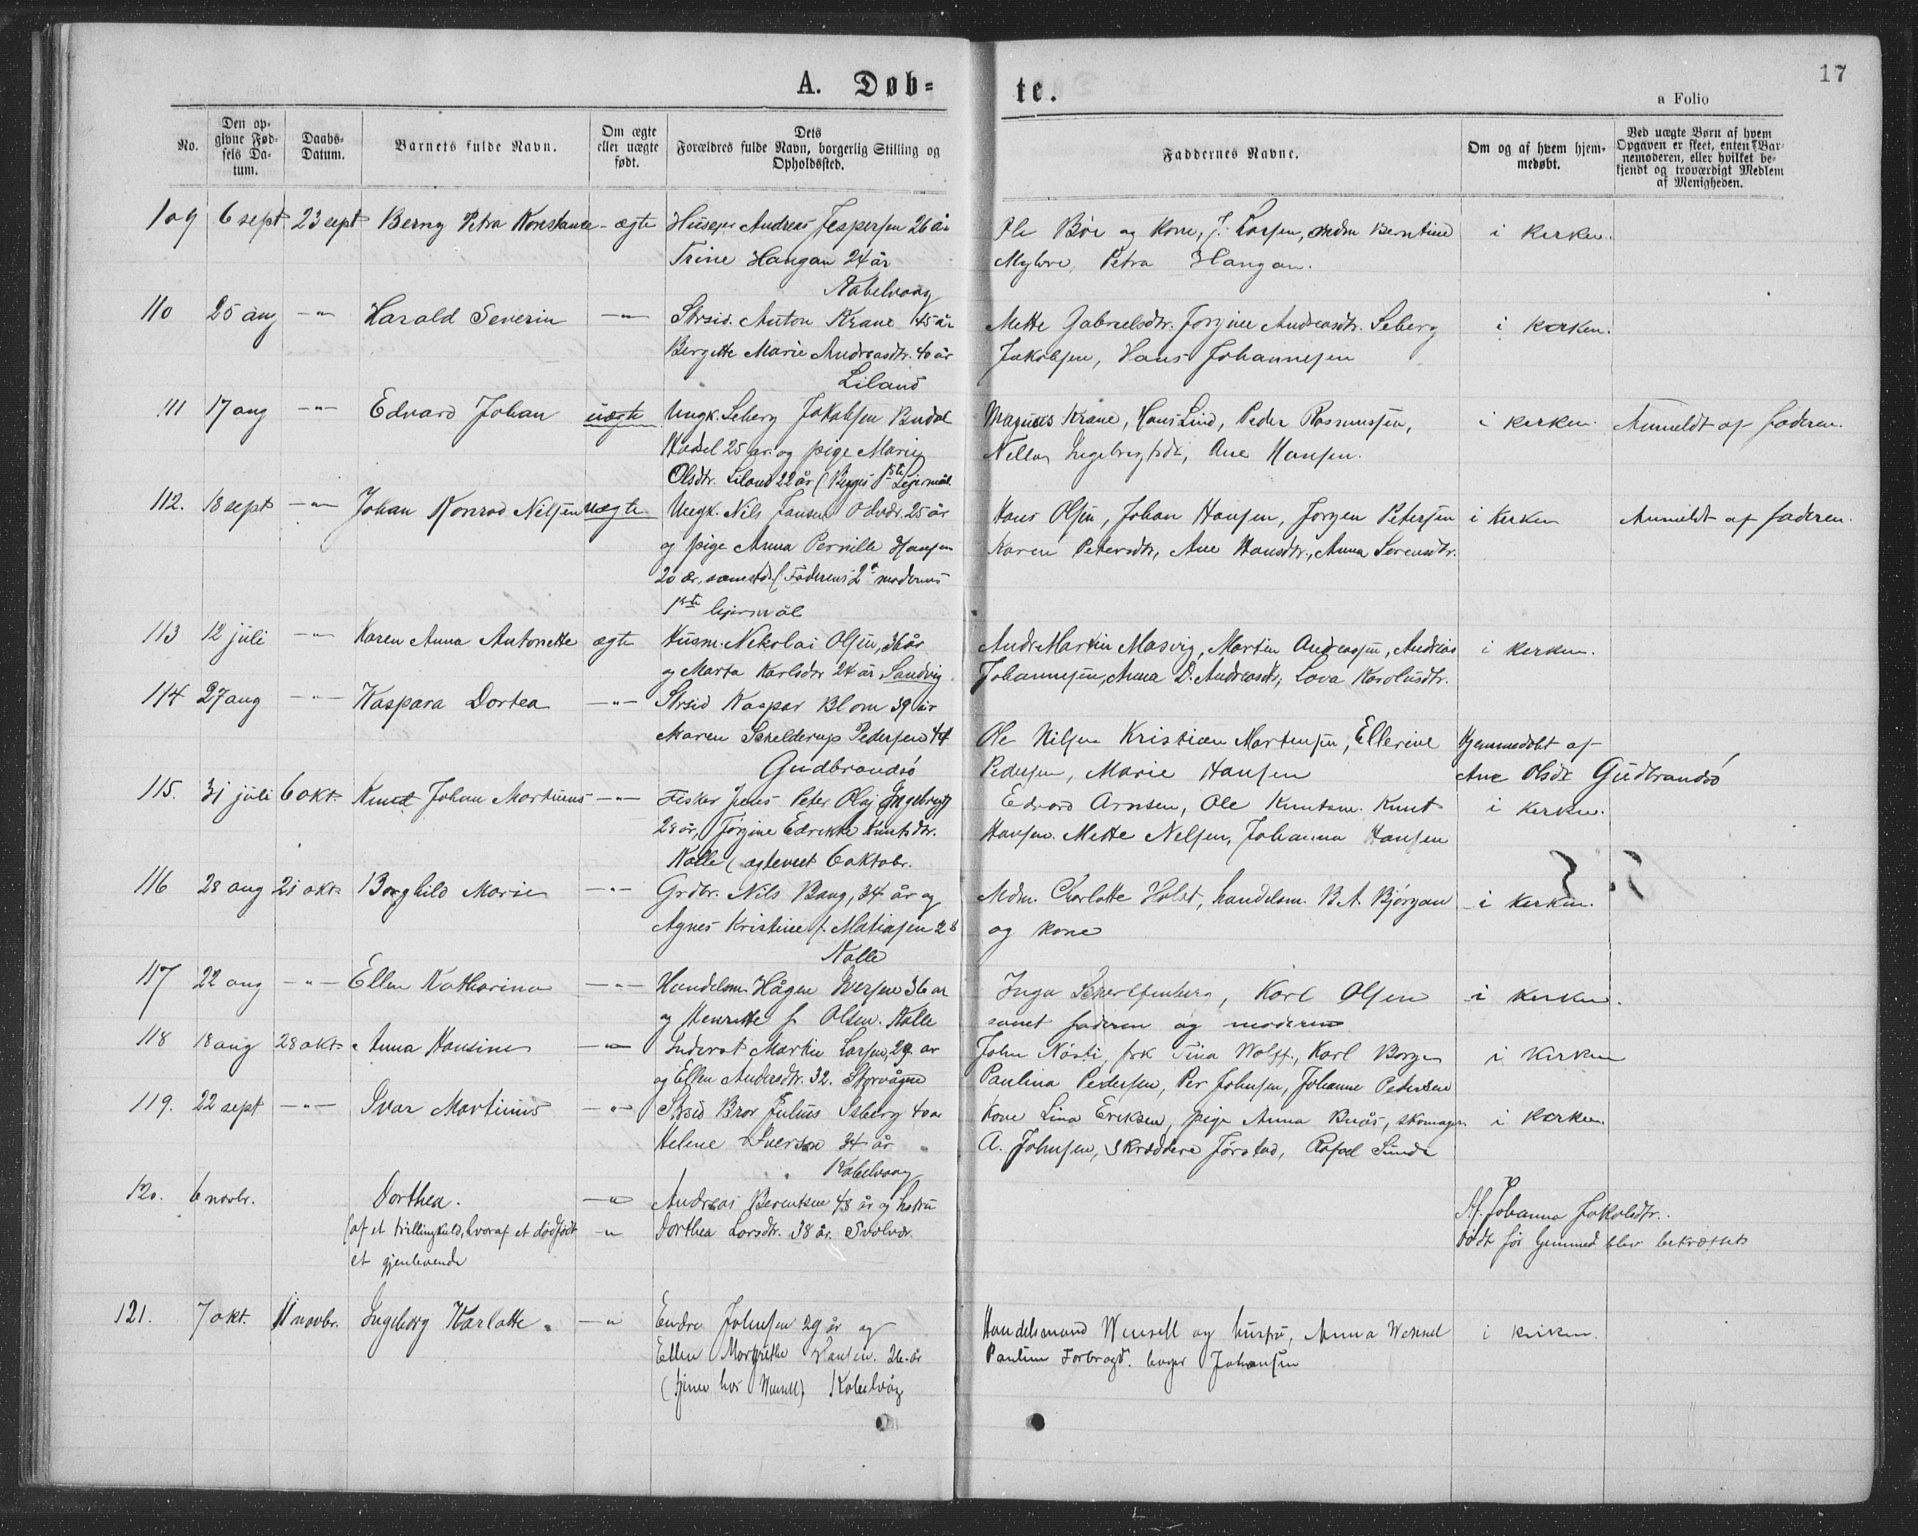 17
A. Døb-
te.
a Folio
No.
Den op-
givne Fød-
sels Da-
tum.
Daabs-
Datum.
Barnets fulde Navn.
Om ægte
eller uægte
født.
Dets
Forældres fulde Navn, borgerlig Stilling og
Opholdssted.
Faddernes Navne.
Om og af hvem hjem-
medøbt.
Ved uægte Børn af hvem
Opgaven er skeet, enten Bar-
nemoderen, eller hvilket be-
kjendt og troværdigt Medlem
af Menigheden.
109 6 sept 23 sept Berny Petra Konstance - ægte Andreas Jespersen 26 år
Trine Hangan 24 år
Kabelvaag
Ole Bøe og kone, J. Larsen, Berntine
Petra Hangan.
i kirken.
110 25 aug -"- Harald Severin -"- Strsid. Anton Krane 45 år
Bergitte Marie Andreasdtr. 40 år
Liland
Mette Gabrielsdtr. Jorgine Andreasdtr. Seberg
Jakobsen, Hans Johannesen
i kirken.
111 17 aug -"- Edvard Johan uægte Ungk. Seberg Jakobsen
25 år og pige Marie
Olsdtr. Liland 22 år (Begges 1ste Lejermål
Magnus Krane, Hans Lind, Peder Rasmussen,
Ane Hansen.
i kirken. Anmeldt af faderen.
112. 18 sept -"- Johan Konrad Nilsen uægte Ungk. Nils Jansen 25 år
og pige Anna Pernille Hansen
20 år, (Faderens 2et moderens
1ste lejermål
Hans Olsen, Johan Hansen, Jørgen Petersen
Karen Petersdtr, Ane Hansdtr., Anna Sørensdtr.
i Kirken Anmeldt af faderen.
113 12 juli -"- Karen Anna Antonette ægte Husm. Nikolai Olsen, 36 år
og Marta Karlsdtr 24 år, Sandvig.
Martin Masvig, Martin Andreassen, Andreas
Johannesen, Anna D. Andreasdtr, Lova Karolusdtr.
i kirken.
114 27 aug -"- Kaspara Dortea -"- Strsid Kaspar Blom 39 år
Maren Schelderup Pedersen 44
Gudbrandsø
Ole Nilsen Kristian Martensen, Ellerine
Pedersen, Marie Hansen
Hjemmedøbt af
Ane Olsdtr Gudbrandsø
115. 31 juli 6 okt. Knud Johan Martinus -"- Fisker Jens Peter Olaj
28 år, Jørgine Edrikke Knutsdtr.
Kalle (ægteviet 6 oktobr.
Edvard Arnsen, Ole Knutsen. Knut
Hansen. Mette Nelsen, Johanna Hansen
i kirken.
116 28 aug 21 okt. Borghild Marie -"- Grdbr. Nils Bang, 34 år og
Agnes Kristine f. Matiasen 28
Kalle
Mdm. Charlotte Holst, handelsm. B A. Bjørgan
og kone
i kirken.
117 22 aug -"- Ellen Katharina -"- Handelsm Hågen Iversen 36 år
og Henrette f. Olsen. Kalle
Inga Karl Olsen
samt faderen og moderen
i kirken.
118 18 aug 28 okt. Anna Hansine -"- Inderst Martin Larsen, 29 år
og Ellen Andersdtr. 32. Storvågen
John frk Tina Wolff., Karl Borgen
Paulina Pedersen, Per Johnsen, Johanne Pedersen
i kirken
119. 22 sept -"- Ivar Martinus -"- Strsid Bror Julius Isberg 40 år
Helene Iversen 34 år
Kabelvaag
Kone Lina Eriksen, pige Anna Buås, skomager
A. Johnsen, Skræddere Jørstad, Rafael Sunde
i kirken
120. 6 novbr. Dorthea. -"- Andreas Berentsen 48 år og hustru
(af et trillingkuld, hvoraf et dødfødt -"- Dorthea Larsdtr. 38 år. Svolvær.
et gjenlevende
Af Johanna Jakobsdtr.
Død før hjemmed. blev bekræftet
121. 7 okt. 11 novbr. Ingeborg Karlotte -"- Endre Johnsen 29 år og
Ellen Margrethe Hansen. 26 år
(tjener hos Wensell) Kabelvåg
Handelsmand Wensell og hustru, Anna Wensel
Pauline Forbregd. bager Johansen
i kirken.